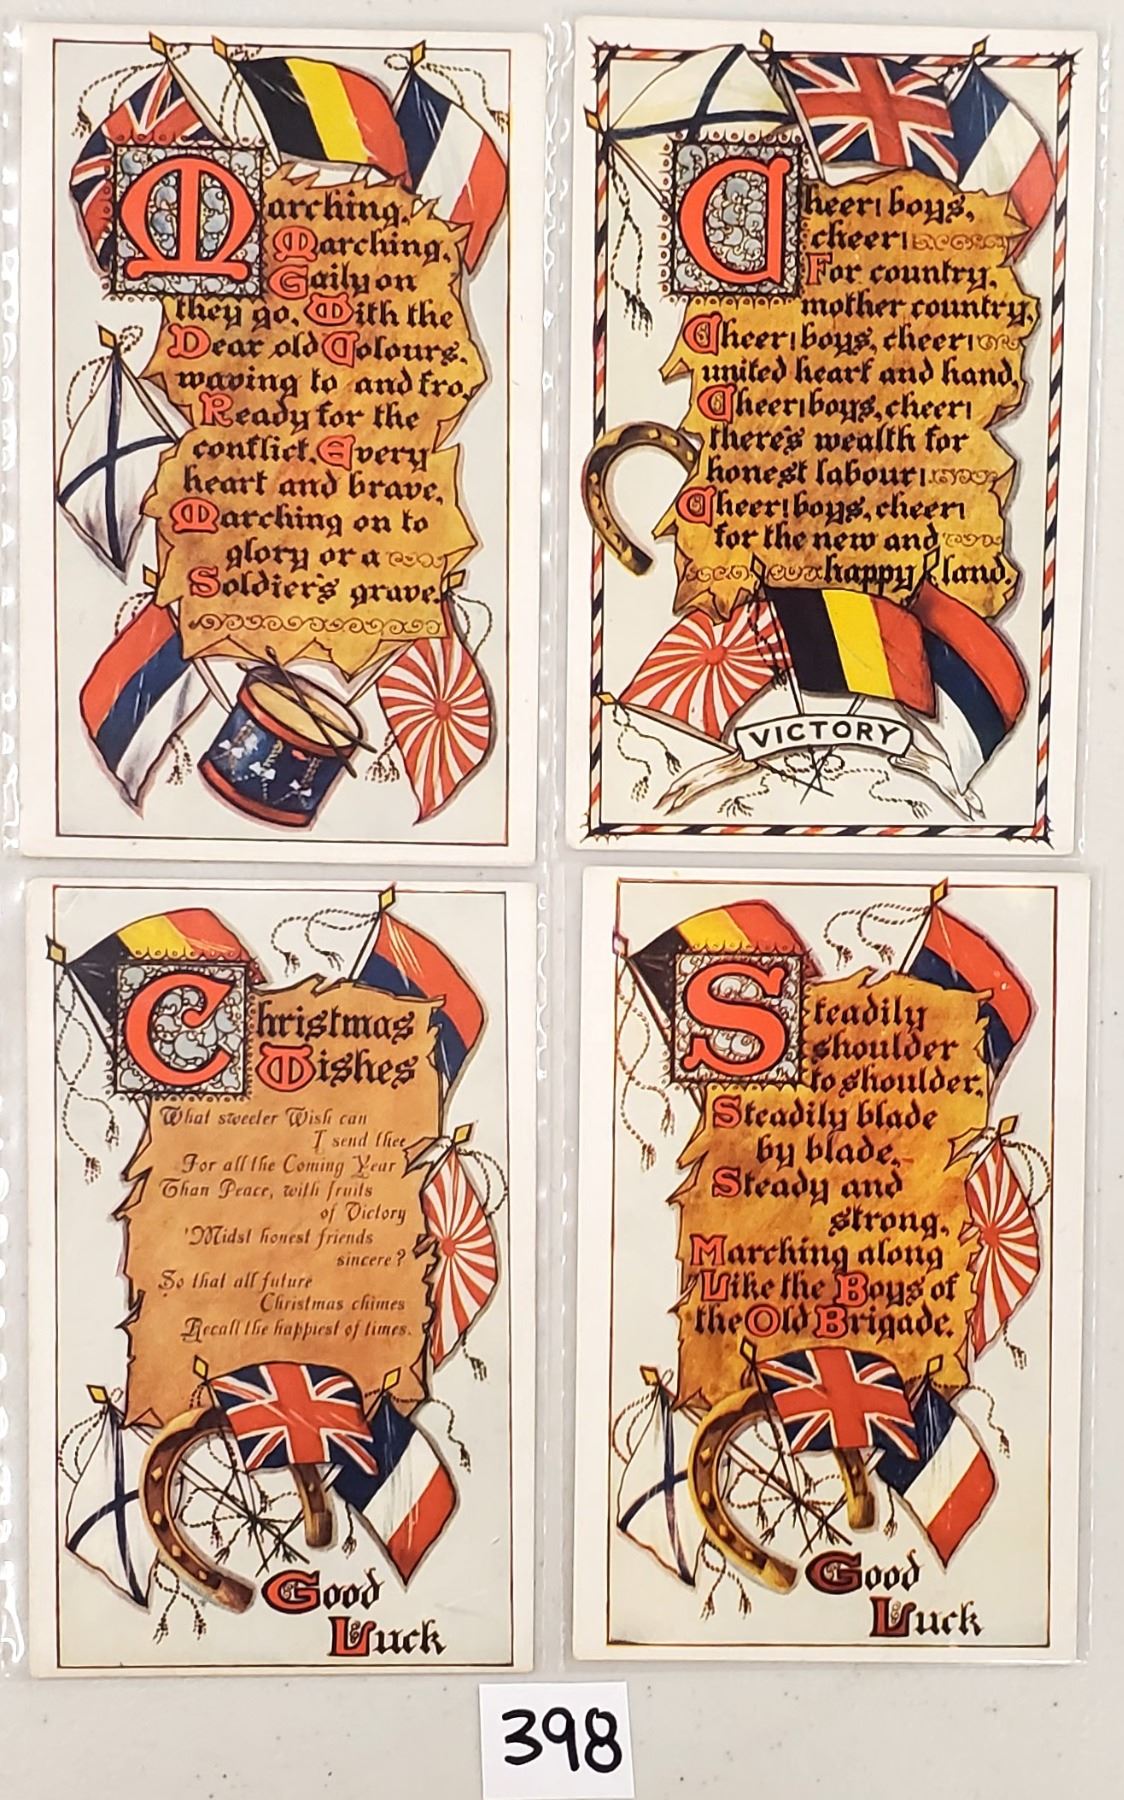 Marching,
Marching,
Gaily on
they go, With the
Dear old Colours,
waving to and fro,
Ready for the
conflict, Every
heart and brave,
Marching on to
glory or a
Soldier's grave.
Cheer! boys,
cheer!
For country,
mother country,
Cheer! boys, cheer!
united heart and hand,
Cheer! boys, cheer!
there's wealth for
honest labour!
Cheer! boys, cheer!
for the new and
happy land.
VICTORY
Christmas
Wishes
What sweeter Wish can
I send thee
For all the Coming Year
Than Peace, with fruits
of Victory
'Midst honest friends
sincere?
So that all future
Christmas chimes
Recall the happiest of times.
Good
Luck
Steadily
shoulder
to shoulder,
Steadily blade
by blade,
Steady and
strong,
Marching along
Like the Boys of
the Old Brigade.
Good
Luck
398